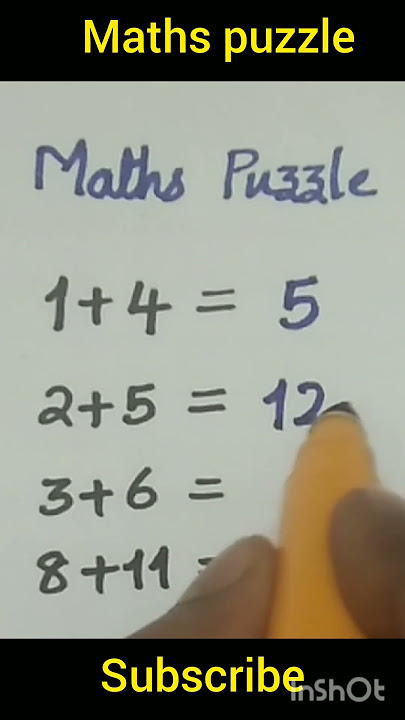 Maths puzzle
Maths Puzzle
1+4 = 5
2+5 = 12
3+6 =
8+11 =
Subscribe
InShOt